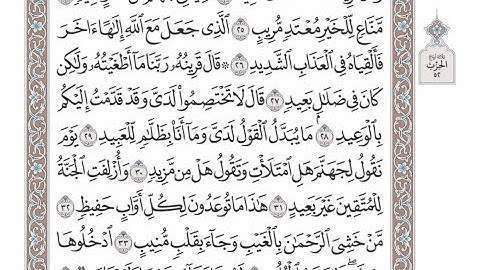 مَّنَّاعٍ لِّلْخَيْرِ مُعْتَدٍ مُّرِيبٍ ﴿٢٥﴾ ٱلَّذِى جَعَلَ مَعَ ٱللَّهِ إِلَٰهًا ءَاخَرَ
فَأَلْقِيَاهُ فِى ٱلْعَذَابِ ٱلشَّدِيدِ ﴿٢٦﴾ ۞ قَالَ قَرِينُهُۥ رَبَّنَا مَآ أَطْغَيْتُهُۥ وَلَٰكِن
كَانَ فِى ضَلَٰلٍۭ بَعِيدٍ ﴿٢٧﴾ قَالَ لَا تَخْتَصِمُوا۟ لَدَىَّ وَقَدْ قَدَّمْتُ إِلَيْكُم
بِٱلْوَعِيدِ ﴿٢٨﴾ مَا يُبَدَّلُ ٱلْقَوْلُ لَدَىَّ وَمَآ أَنَا۠ بِظَلَّٰمٍ لِّلْعَبِيدِ ﴿٢٩﴾ يَوْمَ
نَقُولُ لِجَهَنَّمَ هَلِ ٱمْتَلَأْتِ وَتَقُولُ هَلْ مِن مَّزِيدٍ ﴿٣٠﴾ وَأُزْلِفَتِ ٱلْجَنَّةُ
لِلْمُتَّقِينَ غَيْرَ بَعِيدٍ ﴿٣١﴾ هَٰذَا مَا تُوعَدُونَ لِكُلِّ أَوَّابٍ حَفِيظٍ ﴿٣٢﴾
مَّنْ خَشِىَ ٱلرَّحْمَٰنَ بِٱلْغَيْبِ وَجَآءَ بِقَلْبٍ مُّنِيبٍ ﴿٣٣﴾ ٱدْخُلُوهَا
الحزب
٥٢